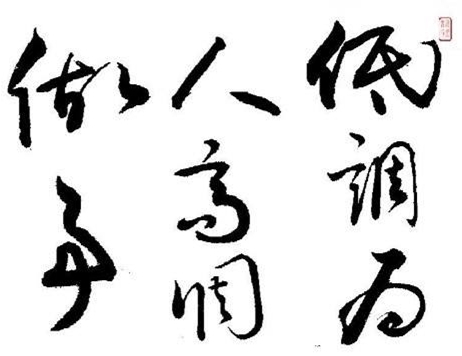 低調为
人高调
做事